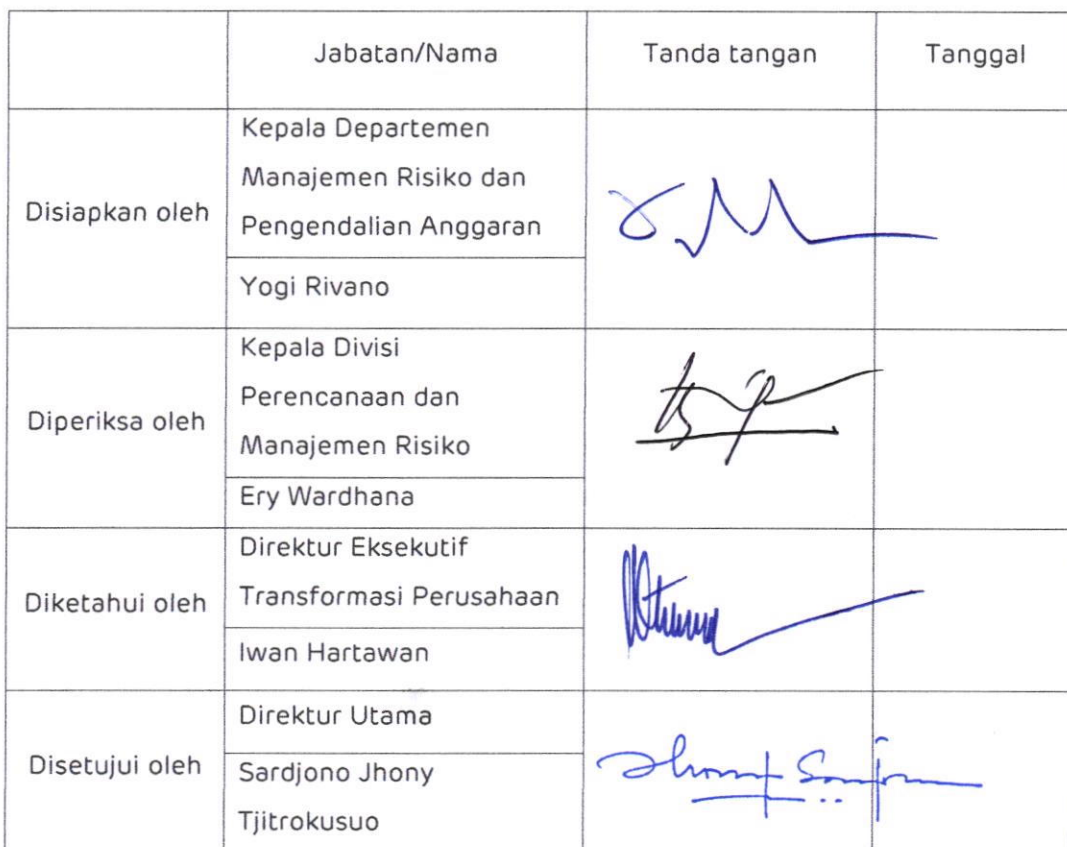 Jabatan/Nama Tanda tangan Tanggal
Disiapkan oleh
Kepala Departemen
Manajemen Risiko dan
Pengendalian Anggaran
Yogi Rivano
Diperiksa oleh
Kepala Divisi
Perencanaan dan
Manajemen Risiko
Ery Wardhana
Diketahui oleh
Direktur Eksekutif
Transformasi Perusahaan
Iwan Hartawan
Disetujui oleh
Direktur Utama
Sardjono Jhony
Tjitrokusuo